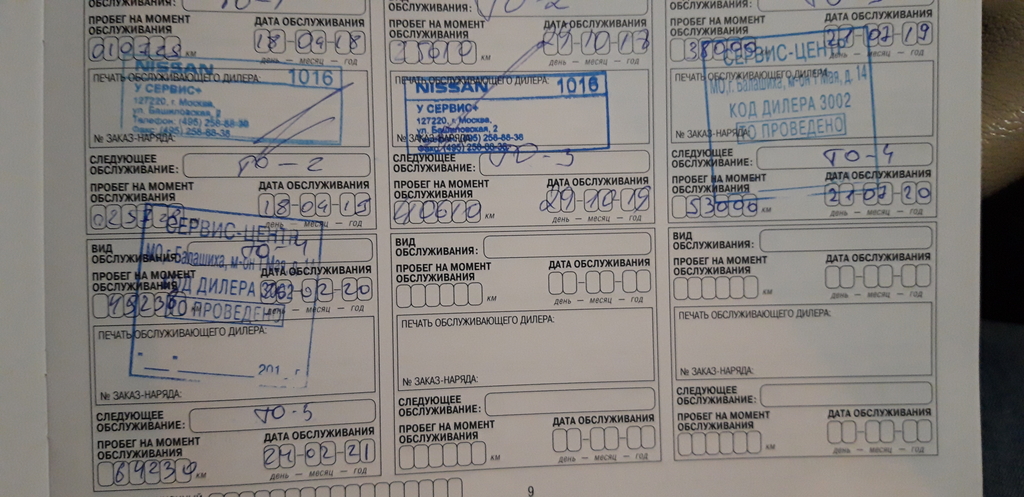 ОБСЛУЖИВАНИЯ: ТО-1
ПРОБЕГ НА МОМЕНТ ДАТА ОБСЛУЖИВАНИЯ
ОБСЛУЖИВАНИЯ
КМ 18-04-18
день — месяц — год
NISSAN 1016
ПЕЧАТЬ ОБСЛУЖИВАЮЩЕГО ДИЛЕРА:
У СЕРВИС+
127220, г. Москва,
ул. Башиловская, 2
Телефон: (495) 258-88-38
Факс: (495) 258-88-38
№ ЗАКАЗ-НАРЯДА:
СЛЕДУЮЩЕЕ
ОБСЛУЖИВАНИЕ: ТО-2
ПРОБЕГ НА МОМЕНТ ДАТА ОБСЛУЖИВАНИЯ
ОБСЛУЖИВАНИЯ
18-04-19
день — месяц — год
ОБСЛУЖИВАНИЯ: ТО-2
ПРОБЕГ НА МОМЕНТ ДАТА ОБСЛУЖИВАНИЯ
ОБСЛУЖИВАНИЯ
25610 КМ
день — месяц — год
ПЕЧАТЬ ОБСЛУЖИВАЮЩЕГО ДИЛЕРА:
NISSAN 1016
У СЕРВИС+
127220, г. Москва,
ул. Башиловская, 2
Телефон: (495) 258-88-38
№ ЗАКАЗ-НАРЯДА:
Факс: (495) 258-88-38
СЛЕДУЮЩЕЕ
ОБСЛУЖИВАНИЕ: ТО-3
ПРОБЕГ НА МОМЕНТ ДАТА ОБСЛУЖИВАНИЯ
ОБСЛУЖИВАНИЯ
40610 КМ 29-10-19
день — месяц — год
ОБСЛУЖИВАНИЯ:
ПРОБЕГ НА МОМЕНТ ДАТА ОБСЛУЖИВАНИЯ
ОБСЛУЖИВАНИЯ
38000 КМ 27-07-19
день — месяц — год
СЕРВИС-ЦЕНТР
ПЕЧАТЬ ОБСЛУЖИВАЮЩЕГО ДИЛЕРА:
МО, г. Балашиха, м-он 1 Мая, д. 14
КОД ДИЛЕРА 3002
ТО ПРОВЕДЕНО
№ ЗАКАЗ-НАРЯДА:
СЛЕДУЮЩЕЕ
ОБСЛУЖИВАНИЕ: ТО-4
ПРОБЕГ НА МОМЕНТ ДАТА ОБСЛУЖИВАНИЯ
ОБСЛУЖИВАНИЯ
53000 КМ 27-07-20
день — месяц — год
СЕРВИС-ЦЕНТР
ВИД
ОБСЛУЖИВАНИЯ: ТО-4
МО, г. Балашиха, м-он 1 Мая, д. 14
ПРОБЕГ НА МОМЕНТ
ОБСЛУЖИВАНИЯ
КОД ДИЛЕРА 3002
02-20
день — месяц — год
ТО ПРОВЕДЕНО
ПЕЧАТЬ ОБСЛУЖИВАЮЩЕГО ДИЛЕРА:
201 г
№ ЗАКАЗ-НАРЯДА:
СЛЕДУЮЩЕЕ
ОБСЛУЖИВАНИЕ: ТО-5
ПРОБЕГ НА МОМЕНТ ДАТА ОБСЛУЖИВАНИЯ
ОБСЛУЖИВАНИЯ
64230 КМ 24-02-21
день — месяц — год
ВИД
ОБСЛУЖИВАНИЯ:
ПРОБЕГ НА МОМЕНТ ДАТА ОБСЛУЖИВАНИЯ
ОБСЛУЖИВАНИЯ
КМ
день — месяц — год
ПЕЧАТЬ ОБСЛУЖИВАЮЩЕГО ДИЛЕРА:
№ ЗАКАЗ-НАРЯДА:
СЛЕДУЮЩЕЕ
ОБСЛУЖИВАНИЕ:
ПРОБЕГ НА МОМЕНТ ДАТА ОБСЛУЖИВАНИЯ
ОБСЛУЖИВАНИЯ
КМ
день — месяц — год
ВИД
ОБСЛУЖИВАНИЯ:
ПРОБЕГ НА МОМЕНТ ДАТА ОБСЛУЖИВАНИЯ
ОБСЛУЖИВАНИЯ
КМ
день — месяц — год
ПЕЧАТЬ ОБСЛУЖИВАЮЩЕГО ДИЛЕРА:
№ ЗАКАЗ-НАРЯДА:
СЛЕДУЮЩЕЕ
ОБСЛУЖИВАНИЕ:
ПРОБЕГ НА МОМЕНТ ДАТА ОБСЛУЖИВАНИЯ
ОБСЛУЖИВАНИЯ
КМ
день — месяц — год
9